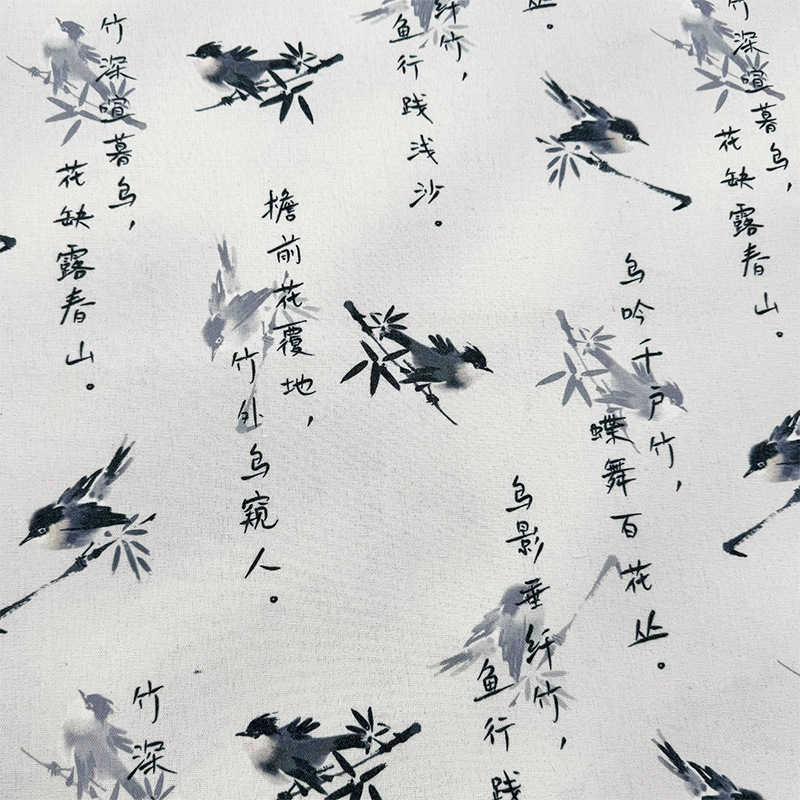 竹深喧暮鸟，
花缺露春山。
檐前花覆地，
竹外鸟窥人。
纤竹，
鱼行践浅沙。
丛。
竹深喧暮鸟，
花缺露春山。
鸟吟千户竹，
蝶舞百花丛。
鸟影垂纤竹，
鱼行践
竹深